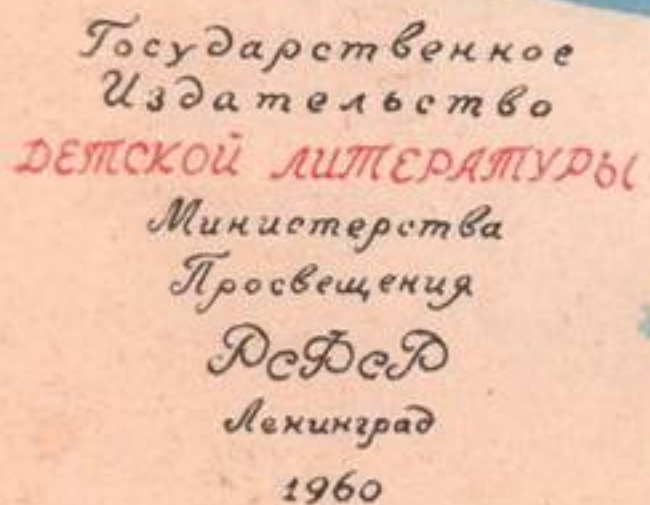 Государственное
Издательство
ДЕТСКОЙ ЛИТЕРАТУРЫ
Министерства
Просвещения
РСФСР
Ленинград
1960